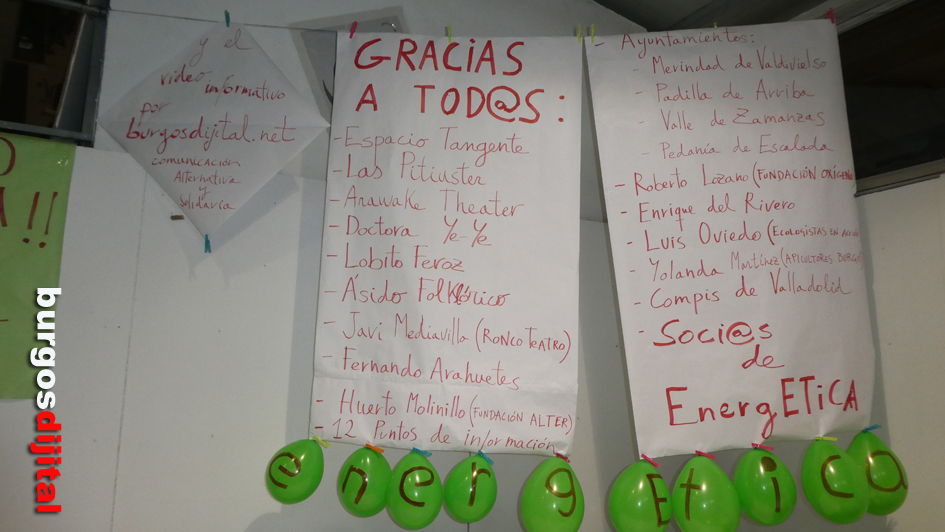 y el
video informativo
por
burgosdijital.net
comunicación
Alternativa
y
solidaria
GRACIAS
A TOD@S:
- Espacio Tangente
- Las Pitiuster
- Arawake Theater
- Doctora Ye-Ye
- Lobito Feroz
- Ásido Folklórico
- Javi Mediavilla (RONCO TEATRO)
- Fernando Arahuetes
- Huerto Molinillo (FUNDACIÓN ALTER)
- 12 Puntos de información
- Ayuntamientos:
- Merindad de Valdivielso
- Padilla de Arriba
- Valle de Zamanzas
- Pedanía de Escalada
- Roberto Lozano (FUNDACIÓN OXÍGENO
- Enrique del Rivero
- Luis Oviedo (ECOLOGISTAS EN
- Yolanda Martínez (APICULTORES
- Compis de Valladolid
- Soci@s
de
EnergETICA
!!
energEtica
burgosdijital